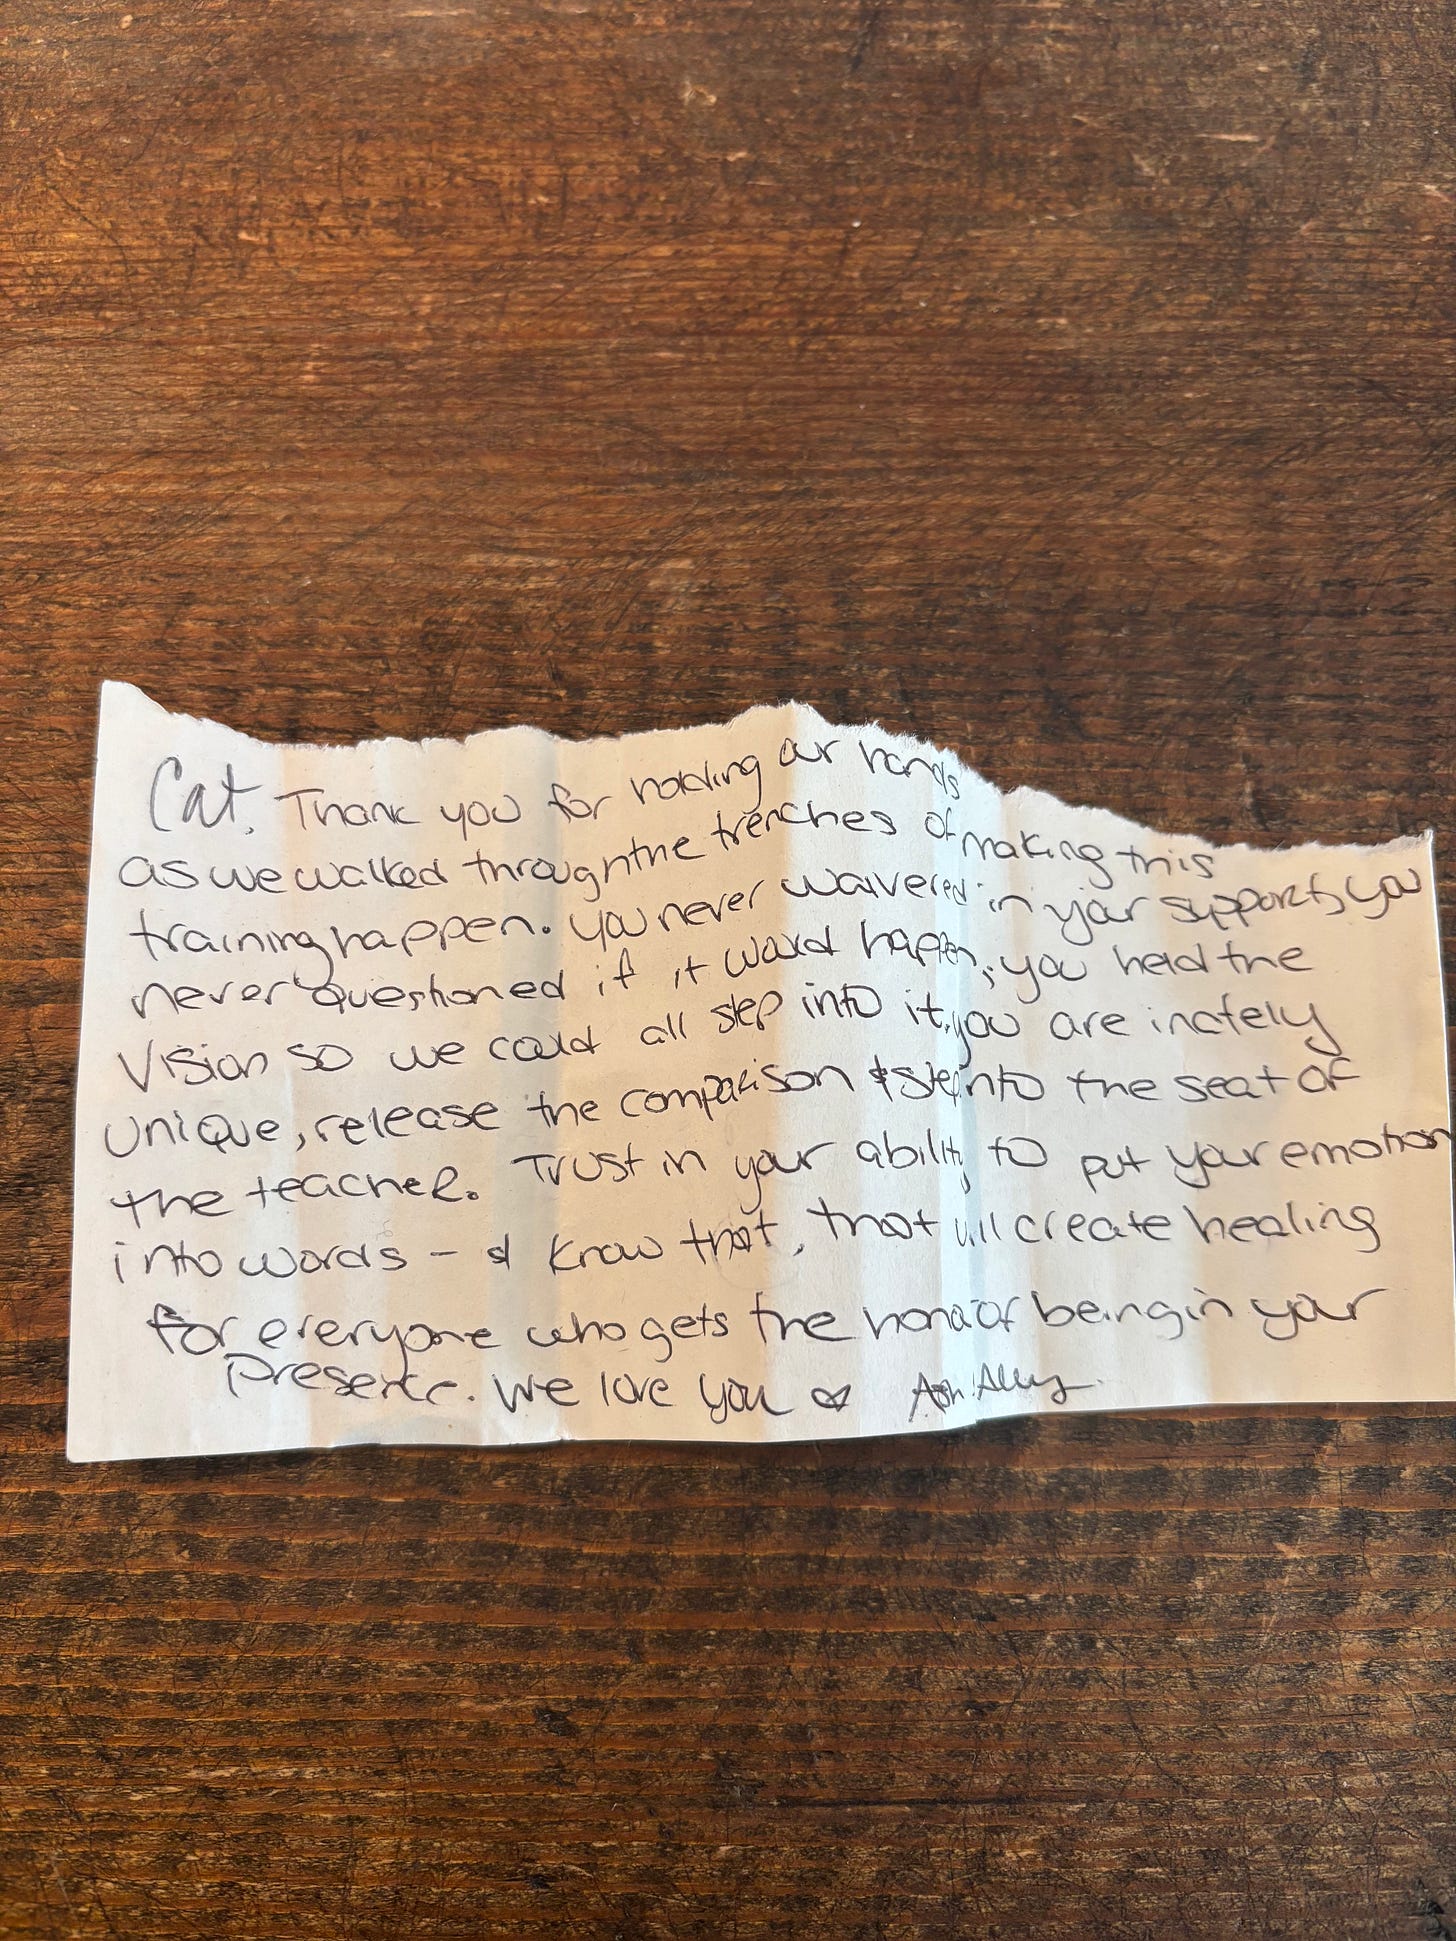 Cat, Thank you for holding our hands
as we walked through the trenches of making this
training happen. You never waivered in your support, you
never questioned if it would happen, you held the
Vision so we could all step into it, you are inately
Unique, release the comparison & step into the seat of
the teacher. Trust in your ability to put your emotion
into words - & know that, that will create healing
for everyone who gets the honor of being in your
Presence. We love you ♡ Ash Alley